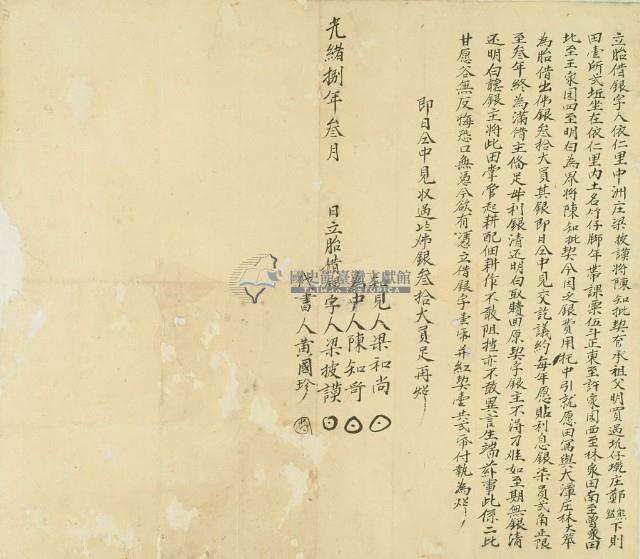 立胎借銀字人依仁里中洲庄梁披謨將陳知批契有承祖父明買過坑仔墘庄鄭 下則
田壹所弍坵坐在依仁里內土名竹仔脚年帶課粟伍斗正東至許家園西至林家田南至曾家田
北至王家園四至明白為界將陳知批契今因乏銀費用托中引就愿田寫與大潭庄林大笨
為胎借出佛銀叁拾大員其銀即日仝中見交訖議約每年愿貼利息銀柒員弍角正限
至叁年終為滿借主俻足母利銀清還明白取贖回原契字銀主不得刁难如至期無銀清
还明白聽銀主將此田掌管起耕配佃耕作不敢阻擋亦不敢異言生端茲事此係二比
甘愿各無反悔恐口無憑今欲有憑立借銀字壹紙并紅契壹共弍紙付執為炤
即日仝中見收過此佛銀叁拾大員足再炤
知見人梁和尚
為中人陳知哥
光緒捌年叁月 日立胎借銀字人梁披謨
代書人黃國珍
國史館臺灣文獻館
TAIWAN HISTORICA